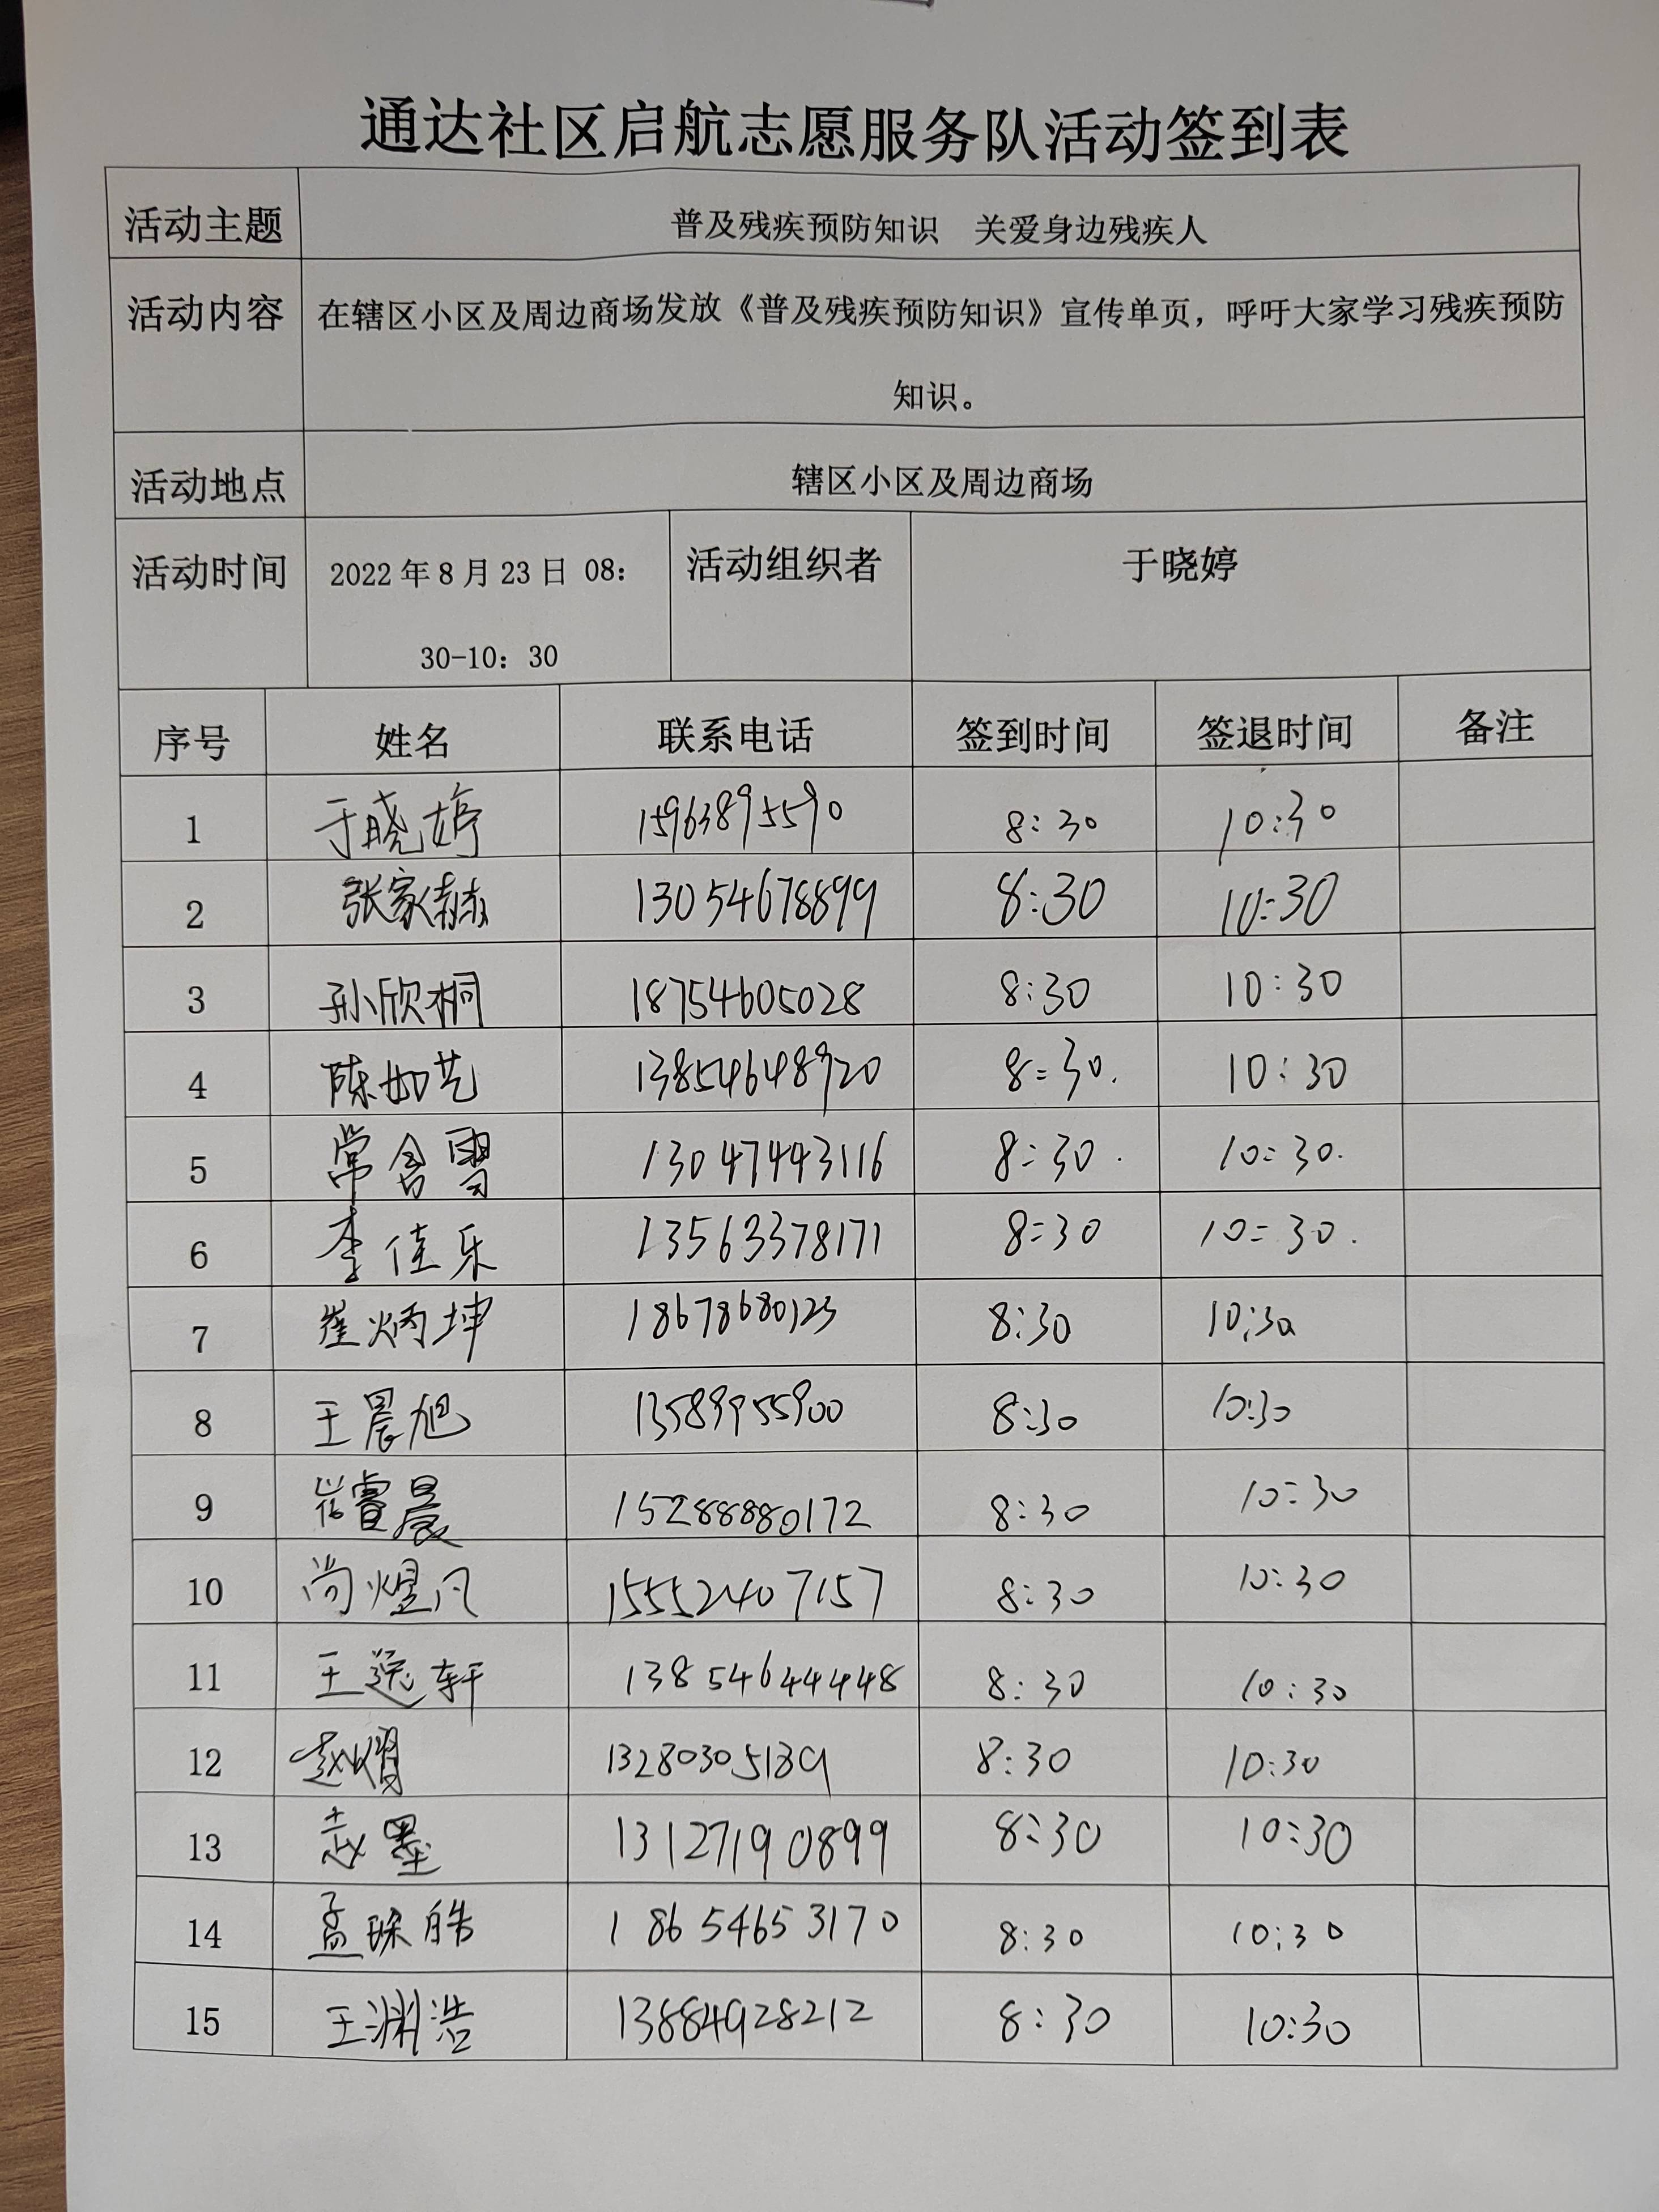 通达社区启航志愿服务队活动签到表
活动主题 普及残疾预防知识 关爱身边残疾人
活动内容 在辖区小区及周边商场发放《普及残疾预防知识》宣传单页，呼吁大家学习残疾预防
知识。
活动地点 辖区小区及周边商场
活动时间 2022年8月23日 08： 活动组织者 于晓婷
30-10：30
序号 姓名 联系电话 签到时间 签退时间 备注
1 于晓婷 15963895590 8:30 10:30
2 张家赫 13054678899 8:30 10:30
3 孙欣桐 18754605028 8:30 10:30
4 陈如艺 13854648920 8:30. 10:30
5 常含雪 13047443116 8:30. 10:30.
6 李佳乐 13563378171 8:30 10:30.
7 崔炳坤 18678680123 8:30 10:30
8 王晨旭 13589955900 8:30 10:30
9 崔睿晨 15288880172 8:30 10:30
10 尚煜凡 15552407157 8:30 10:30
11 王逸轩 13854644448 8:30 10:30
12 赵熠 13280305189 8:30 10:30
13 赵墨 13127190899 8:30 10:30
14 孟琛皓 18654653170 8:30 10:30
15 王渊浩 13884928212 8:30 10:30